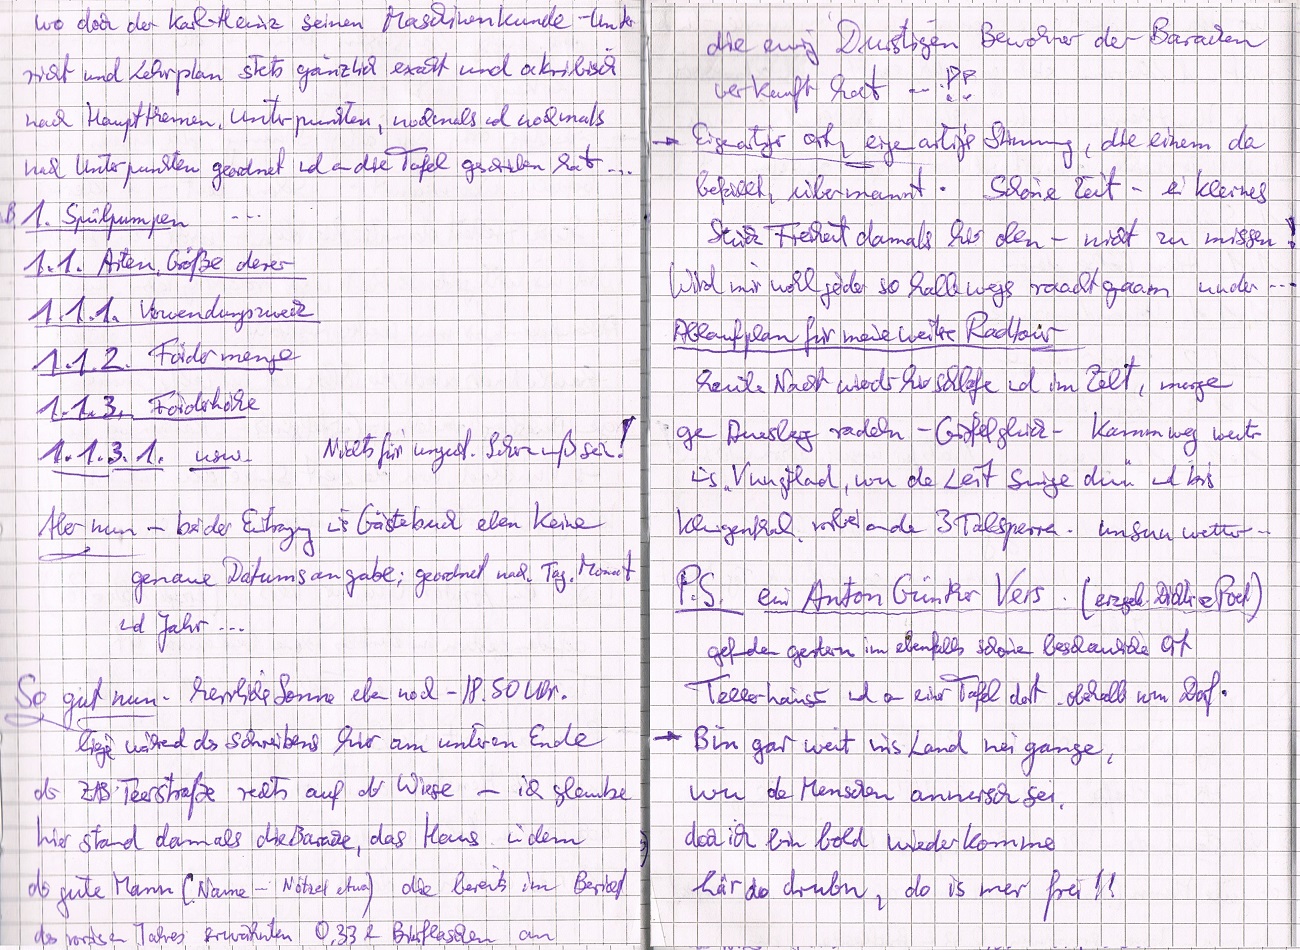 wo doch der Karl-Heinz seinen Maschinenkunde-Unter
richt und Lehrplan stets gänzlich exakt und akribisch
nach Hauptthemen, Unterpunkten, nochmals und nochmals
nach Unterpunkten geordnet und an die Tafel geschrieben hat ...
1. Spülpumpen ---
1.1. Arten, Größe derer
1.1.1. Verwendungszweck
1.1.2. Fördermenge
1.1.3. Förderhöhe
1.1.3.1. usw. Nichts für ungut. Schon muß sei!
Aber nun – bei der Eintragung ins Gästebuch eben keine
genaue Datumsangabe; geordnet nach Tag, Monat
und Jahr ...
So gut nun - herrliche Sonne eben noch - 18.50 Uhr.
liege während des Schreibens hier am unteren Ende
der ZAB-Teerstraße rechts auf der Wiese – ich glaube
hier stand damals die Baracke, das Haus in dem
der gute Mann (Name - Nötzel etwa) die bereits im Bericht
des vorigen Jahres erwähnten 0,33 l Bierflaschen an
die ewig Durstigen Bewohner der Baracken
verkauft hat --- !!
→ Eigenartig, eigenartige Stimmung, die einem da
befällt, übermannt. Schöne Zeit - ein kleines
Stück Freiheit damals hier oben - nicht zu missen!
Wird mir wohl jeder so halbwegs ---
Ablaufplan für meine weitere Radtour
heute Nacht wieder hier schlafe und im Zelt, morgen
gen Auersberg radeln - Gipfelglück - Kammweg weiter
ins Vugtlad, wu de Leit Singe drin und bis
Klingenthal, vorbei an de 3 Talsperren.
P.S. ein Anton Günther Vers. (erzgeb. Dichter Poet)
gefunden gestern im ebenfalls schönen beschaulichen Ort
Tellerhäuser und an einer Tafel dort oberhalb vom Dorf.
→ Bin gar weit ins Land nei gange,
wu de Menschen annersch sei,
doch ich bin bold wiederkomme
här do drubn, do is mer frei!!